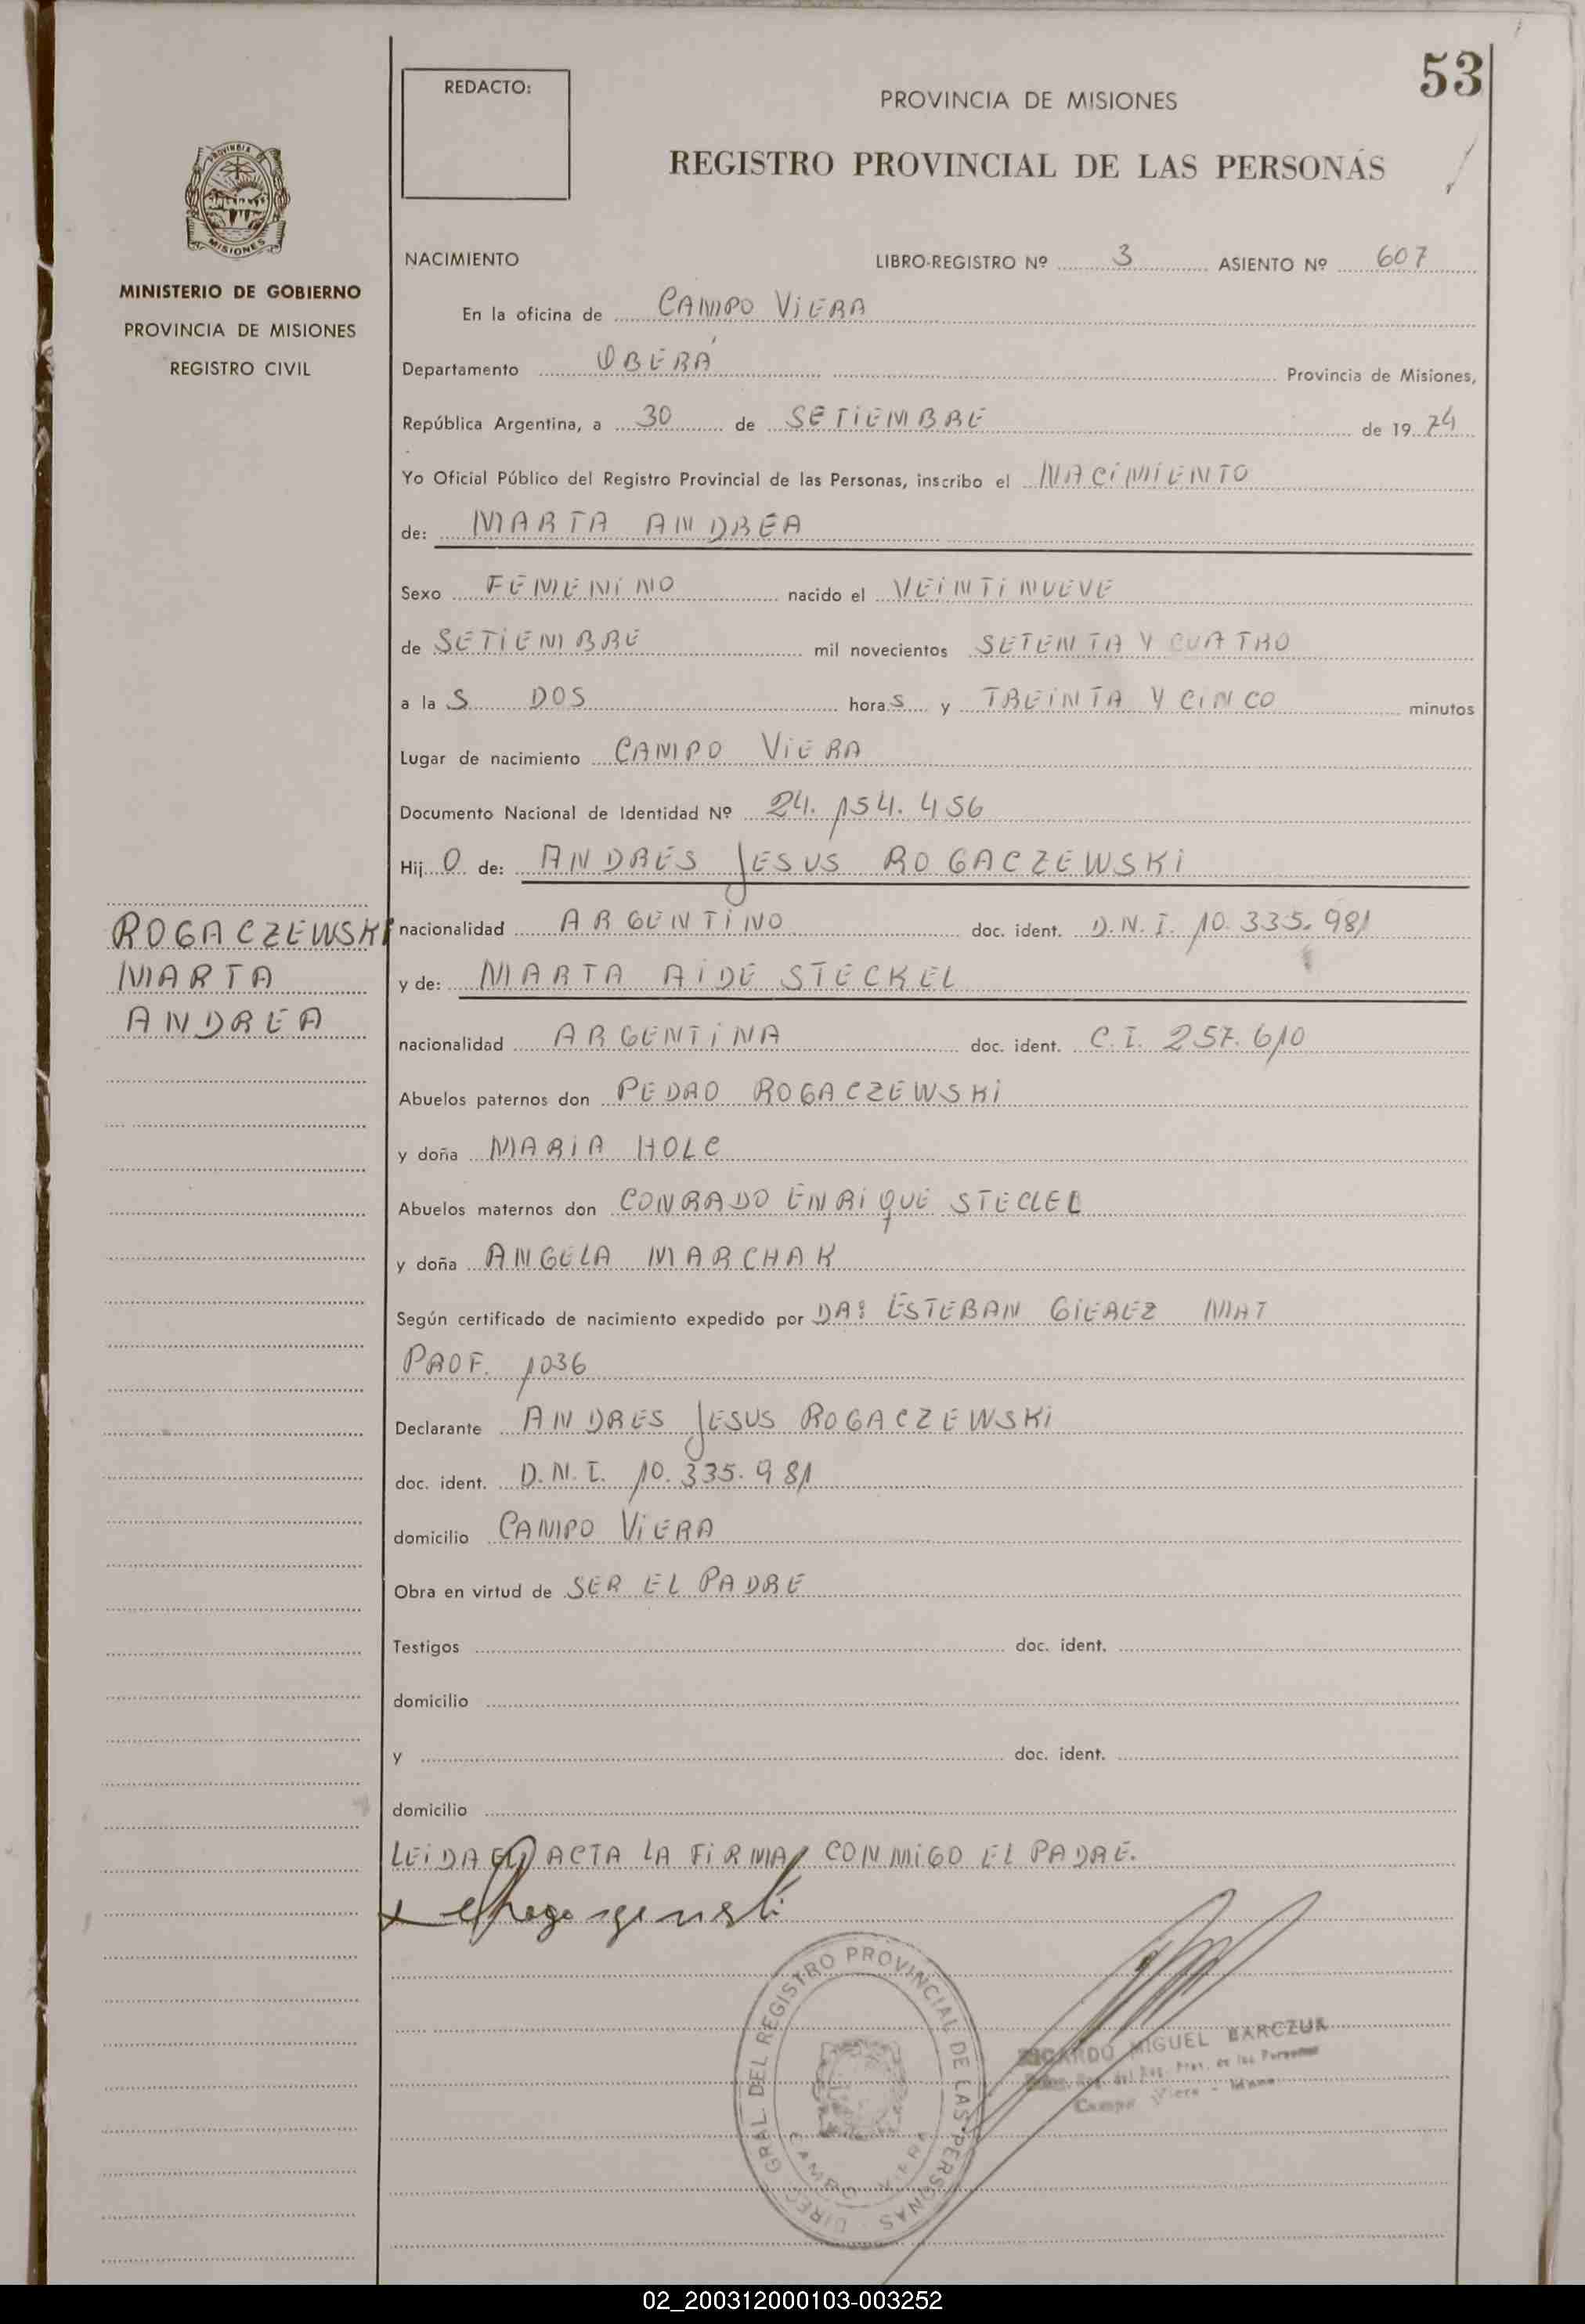 53
REDACTO:
PROVINCIA DE MISIONES
REGISTRO PROVINCIAL DE LAS PERSONAS
PROVINCIA DE
MISIONES
MINISTERIO DE GOBIERNO
PROVINCIA DE MISIONES
REGISTRO CIVIL
NACIMIENTO LIBRO-REGISTRO Nº 3 ASIENTO Nº 607
En la oficina de CAMPO VIERA
Departamento OBERÁ Provincia de Misiones,
República Argentina, a 30 de SETIEMBRE de 1974
Yo Oficial Público del Registro Provincial de las Personas, inscribo el NACIMIENTO
de: MARTA ANDREA
Sexo FEMENINO nacido el VEINTINUEVE
de SETIEMBRE mil novecientos SETENTA Y CUATRO
a la S DOS horas y TREINTA Y CINCO minutos
Lugar de nacimiento CAMPO VIERA
Documento Nacional de Identidad Nº 24.154.456
Hij O de: ANDRES JESUS ROGACZEWSKI
nacionalidad ARGENTINO doc. ident. D.N.I. 10.335.981
y de: MARTA AIDE STECKEL
nacionalidad ARGENTINA doc. ident. C.I. 257.610
Abuelos paternos don PEDRO ROGACZEWSKI
y doña MARIA HOLC
Abuelos maternos don CONRADO ENRIQUE STECLEL
y doña ANGELA MARCHAK
Según certificado de nacimiento expedido por DR: ESTEBAN GIEREZ MAT
PROF. 1036
Declarante ANDRES JESUS ROGACZEWSKI
doc. ident. D.N.I. 10.335.981
domicilio CAMPO VIERA
Obra en virtud de SER EL PADRE
Testigos doc. ident.
domicilio
y doc. ident.
domicilio
LEIDA EL ACTA LA FIRMA CONMIGO EL PADRE.
ROGACZEWSKI
MARTA
ANDREA
DIREC. GRAL. DEL REGISTRO PROVINCIAL DE LAS PERSONAS
CAMPO VIERA
RICARDO MIGUEL BARCZUK
Reg. del Reg. Prov. de las Personas
Campo Viera - Mnes.
02_200312000103-003252